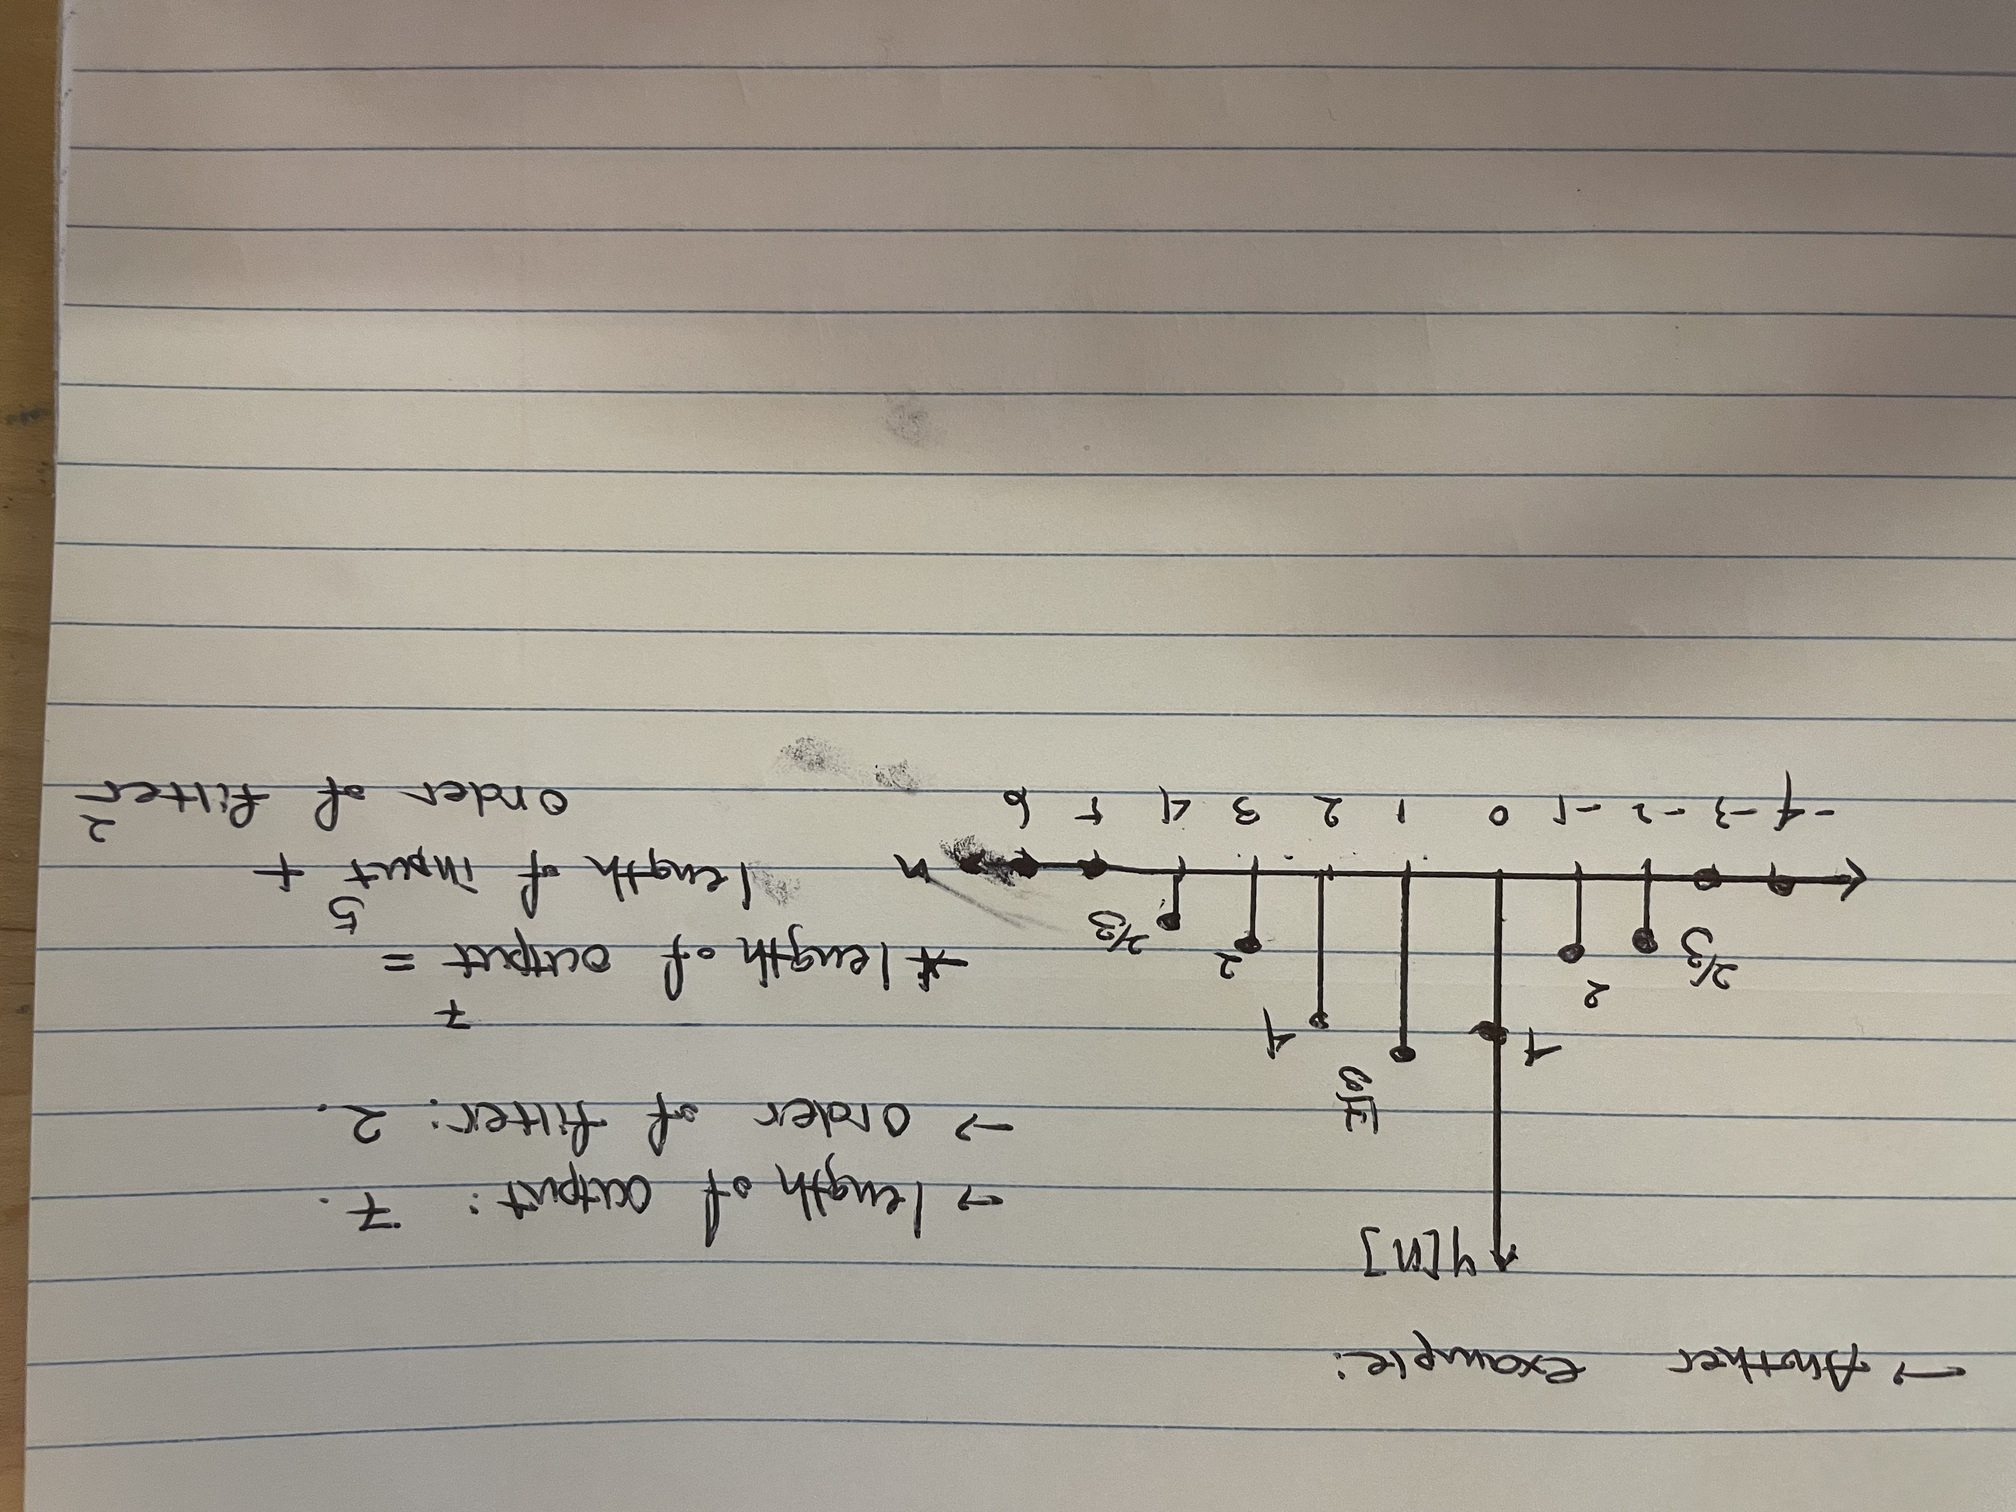 → Another example:
y[n]
→ length of output: 7.
→ order of filter: 2.
14/3
4 4
7
2/3 2 2 2/3
* length of output =
5
n
length of input +
2
-4 -3 -2 -1 0 1 2 3 4 5 6
order of filter